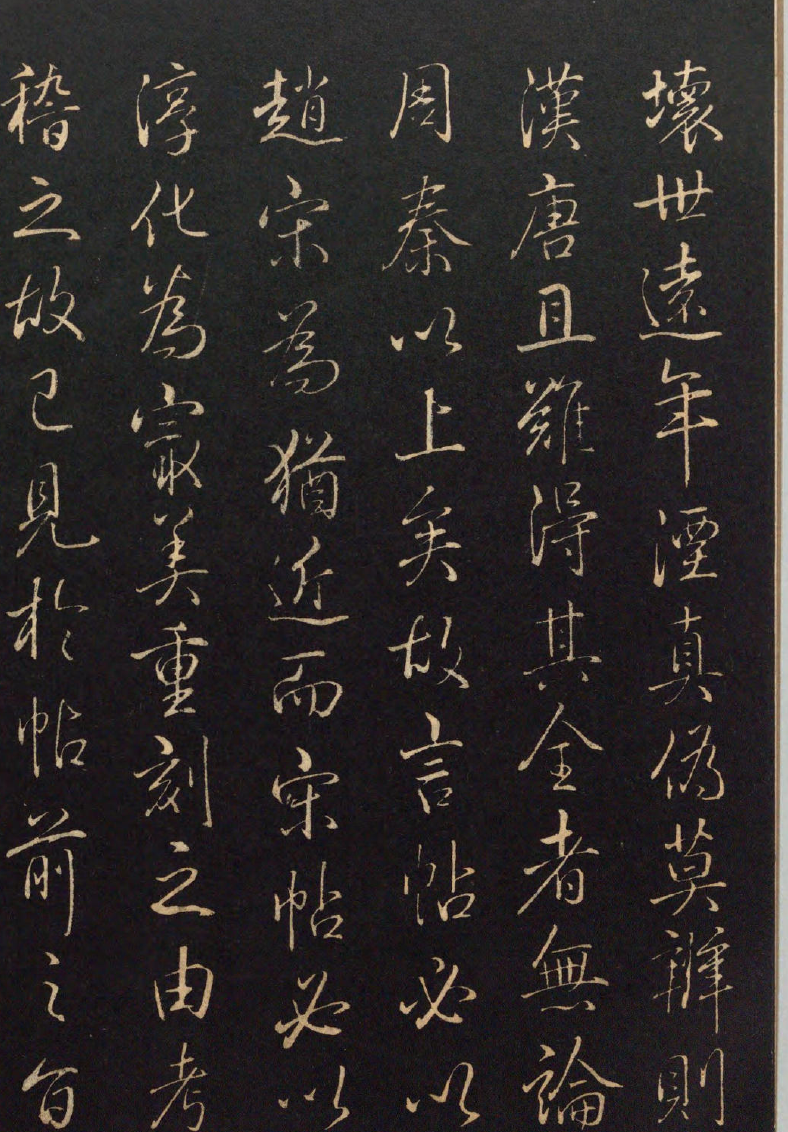 壞世遠年湮真偽莫辨則
漢唐且難得其全者無論
周秦以上矣故言帖必以
趙宋為猶近而宋帖必以
淳化為冣美重刻之由考
稽之故已見於帖前之旨